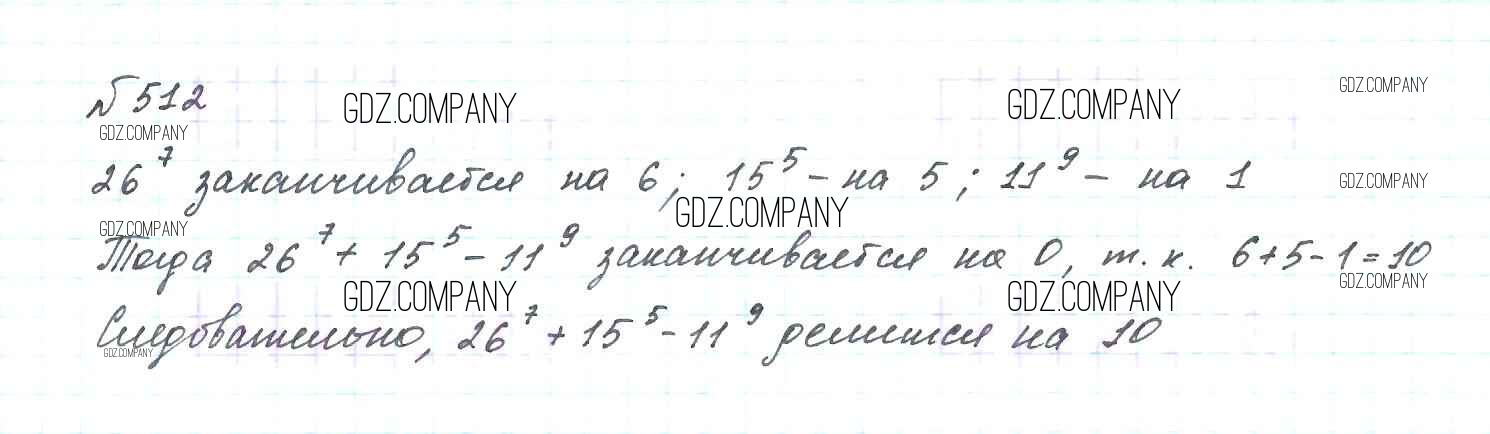 №512
GDZ.COMPANY GDZ.COMPANY GDZ.COMPANY
GDZ.COMPANY
26⁷ заканчивается на 6; 15⁵ – на 5; 11⁹ – на 1
GDZ.COMPANY
GDZ.COMPANY GDZ.COMPANY
Тогда 26⁷ + 15⁵ – 11⁹ заканчивается на 0, т. к. 6+5-1=10
GDZ.COMPANY GDZ.COMPANY GDZ.COMPANY
Следовательно, 26⁷ + 15⁵ – 11⁹ делится на 10
GDZ.COMPANY